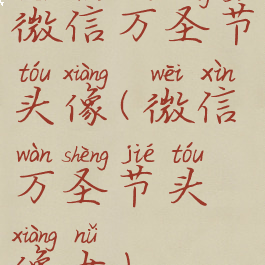 微信万圣节
tóu xiàng wēi xìn
头像(微信
wàn shèng jié tóu
万圣节头
xiàng nǚ
像女)